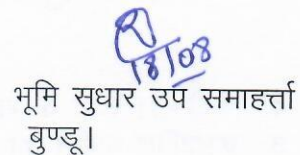 18/08
भूमि सुधार उप समाहर्त्ता
बुण्डू।